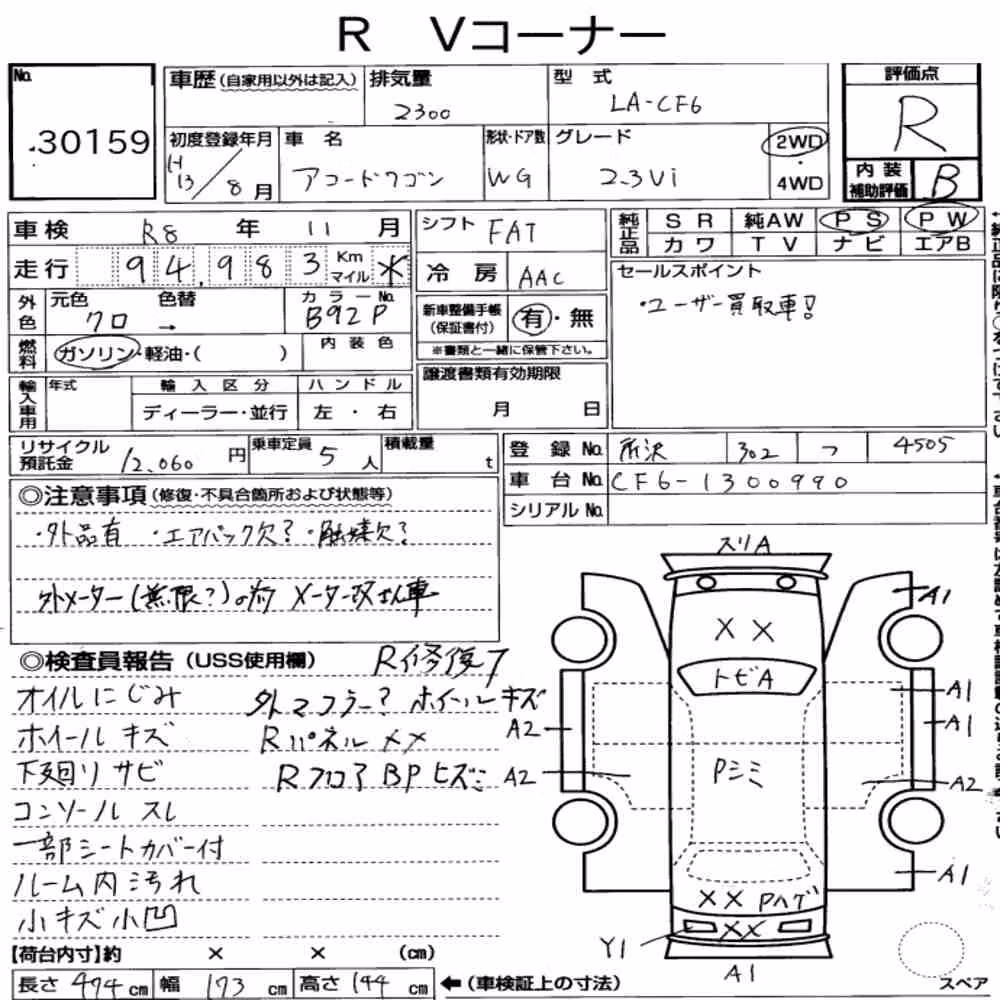 R Vコーナー
No. 30159
車歴(自家用以外は記入) 排気量 2300 型式 LA-CF6 評価点 R
初度登録年月 H13/8月 車名 アコードワゴン 形状・ドア数 WG グレード 2.3Vi 2WD・4WD 内装補助評価 B
車検 R8年 11月 シフト FAT 純正品 SR 純AW PS PW
カワ TV ナビ エアB
走行 94,983 Km マイル * 冷房 AAC セールスポイント
・ユーザー買取車!
外色 元色 クロ → 色替 カラーNo. B92P 新車整備手帳(保証書付) 有・無
※書類と一緒に保管下さい。
燃料 ガソリン・軽油・( ) 内装色
輸入車用 年式 輸入区分 ハンドル 譲渡書類有効期限
ディーラー・並行 左・右 月 日
リサイクル預託金 12,060円 乗車定員 5人 積載量 t 登録No. 所沢 302 つ 4505
車台No. CF6-1300990
シリアルNo.
◎注意事項(修復・不具合箇所および状態等)
・外品有 ・エアバック欠? ・触媒欠?
外メーター(無限?)の為 メーター改ざん車
◎検査員報告(USS使用欄) R修復7
オイルにじみ 外マフラー? ホイールキズ
ホイールキズ Rパネル XX
下廻りサビ Rフロア BPヒズミ
コンソールスレ
一部シートカバー付
ルーム内汚れ
小キズ小凹
スリA
A1
XX
トビA
A1
A2 A1
A2 Pシミ A2
XX Pハゲ A1
Y1 XX
A1
スペア
【荷台内寸】約 × × (cm)
長さ 474cm 幅 173cm 高さ 144cm ←(車検証上の寸法)